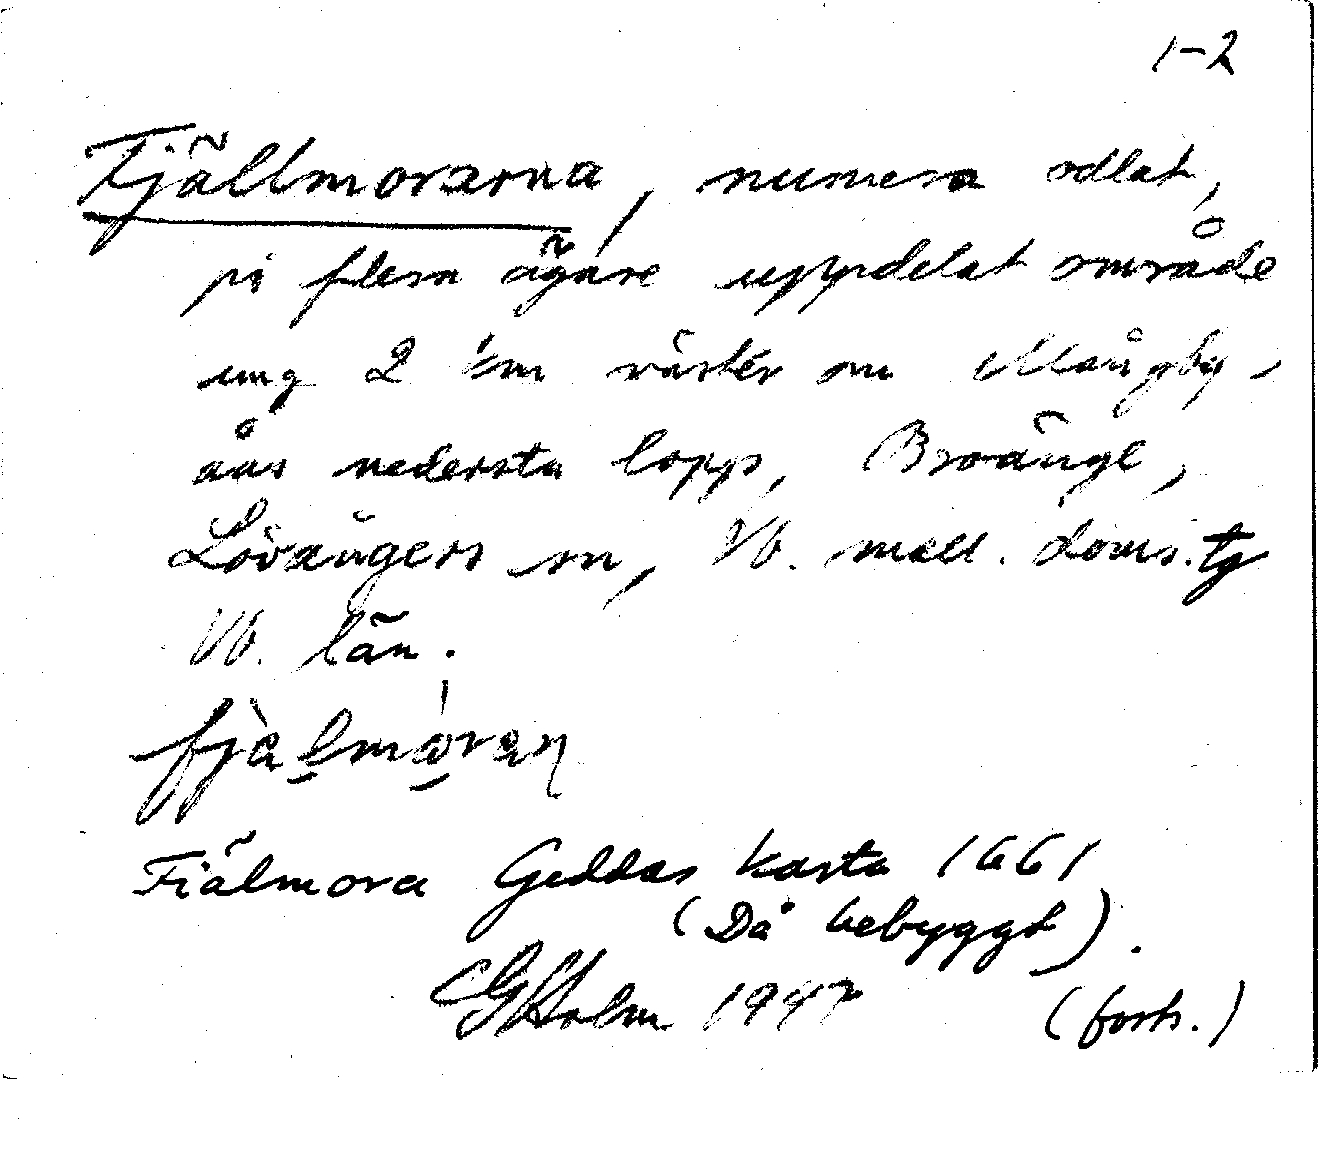 1-2
Fjällmorarna, numera odlat,
på flera ägare uppdelat område
ung 2 km väster om Mångby-
åns nedersta lopp, Broänge,
Lövångers sn, Vb. mell. doms. tg
Vb. län.
Fiälmora Geddas karta 1661
(Då bebyggt).
CGHolm 1947 (forts.)